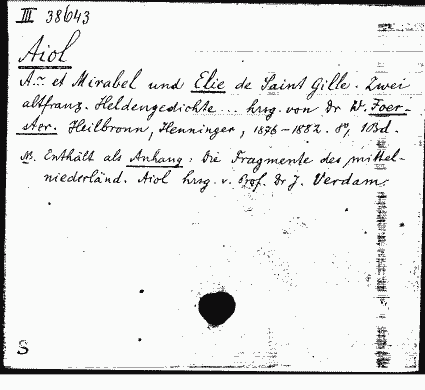 III 38643
Aiol
A... et Mirabel und Elie de Saint Gille. Zwei
altfranz. Heldengedichte ... hrsg. von Dr W. Foer-
ster. Heilbronn, Henninger, 1876-1882. 8°, 1 Bd.
NB. Enthält als Anhang: Die Fragmente des mittel-
niederländ. Aiol hrsg. v. Prof. Dr J. Verdam.
S